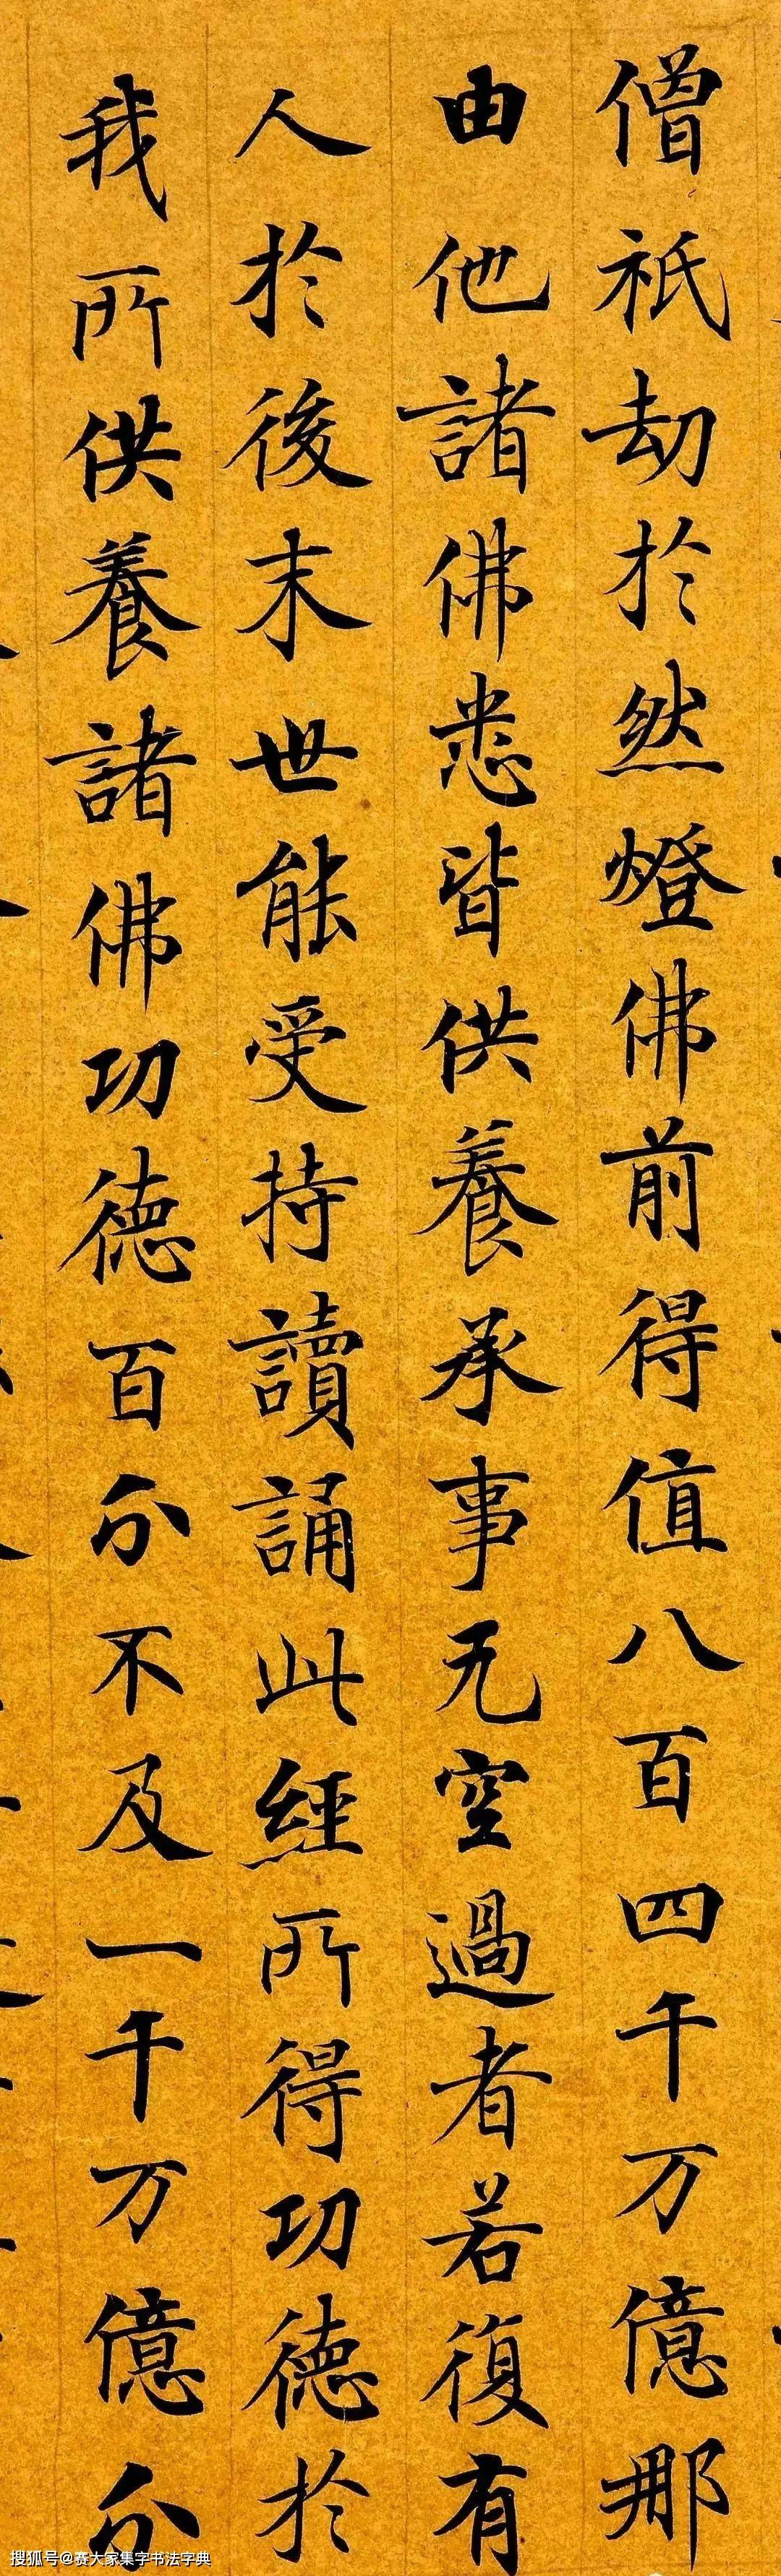 僧祇劫於然燈佛前得值八百四千万億那
由他諸佛悉皆供養承事无空過者若復有
人於後末世能受持讀誦此經所得功德於
我所供養諸佛功德百分不及一千万億分
搜狐号@赛大家集字书法字典